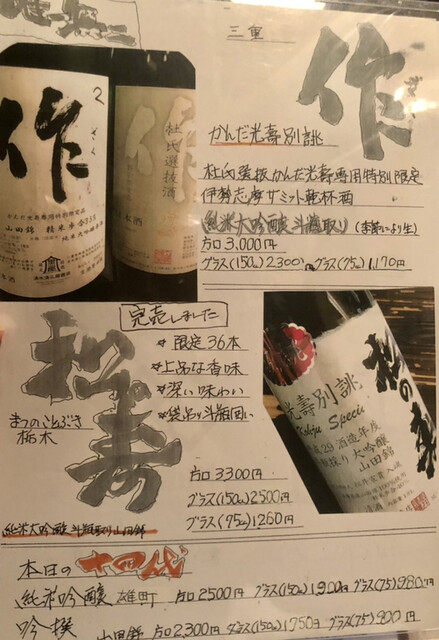 三重
作
ざく
かんだ光壽別誂
杜氏選抜かんだ光壽専用特別限定
伊勢志摩サミット乾杯酒
純米大吟醸斗瓶取り (季節により生)
片口 3,000円
グラス(150cc)2300 グラス(75cc)1,170円
作
ざく
山田錦 精米歩合
作
杜氏選抜酒
完売しました
松の寿
まつのことぶき
栃木
限定36本
上品な香味
深い味わい
袋吊り斗瓶囲い
片口 3300円
グラス(150cc)2500円
グラス(75cc)1260円
純米大吟醸斗瓶取り山田錦
光壽別誂
Kouju Special
松の寿
平成29酒造年度
大吟醸
山田錦
本日の十四代
純米吟醸 雄町 片口2500円 グラス(150cc)1900円 グラス(75)980円
吟撰 山田錦 片口2,300円 グラス(150cc)1750円 グラス(75)900円